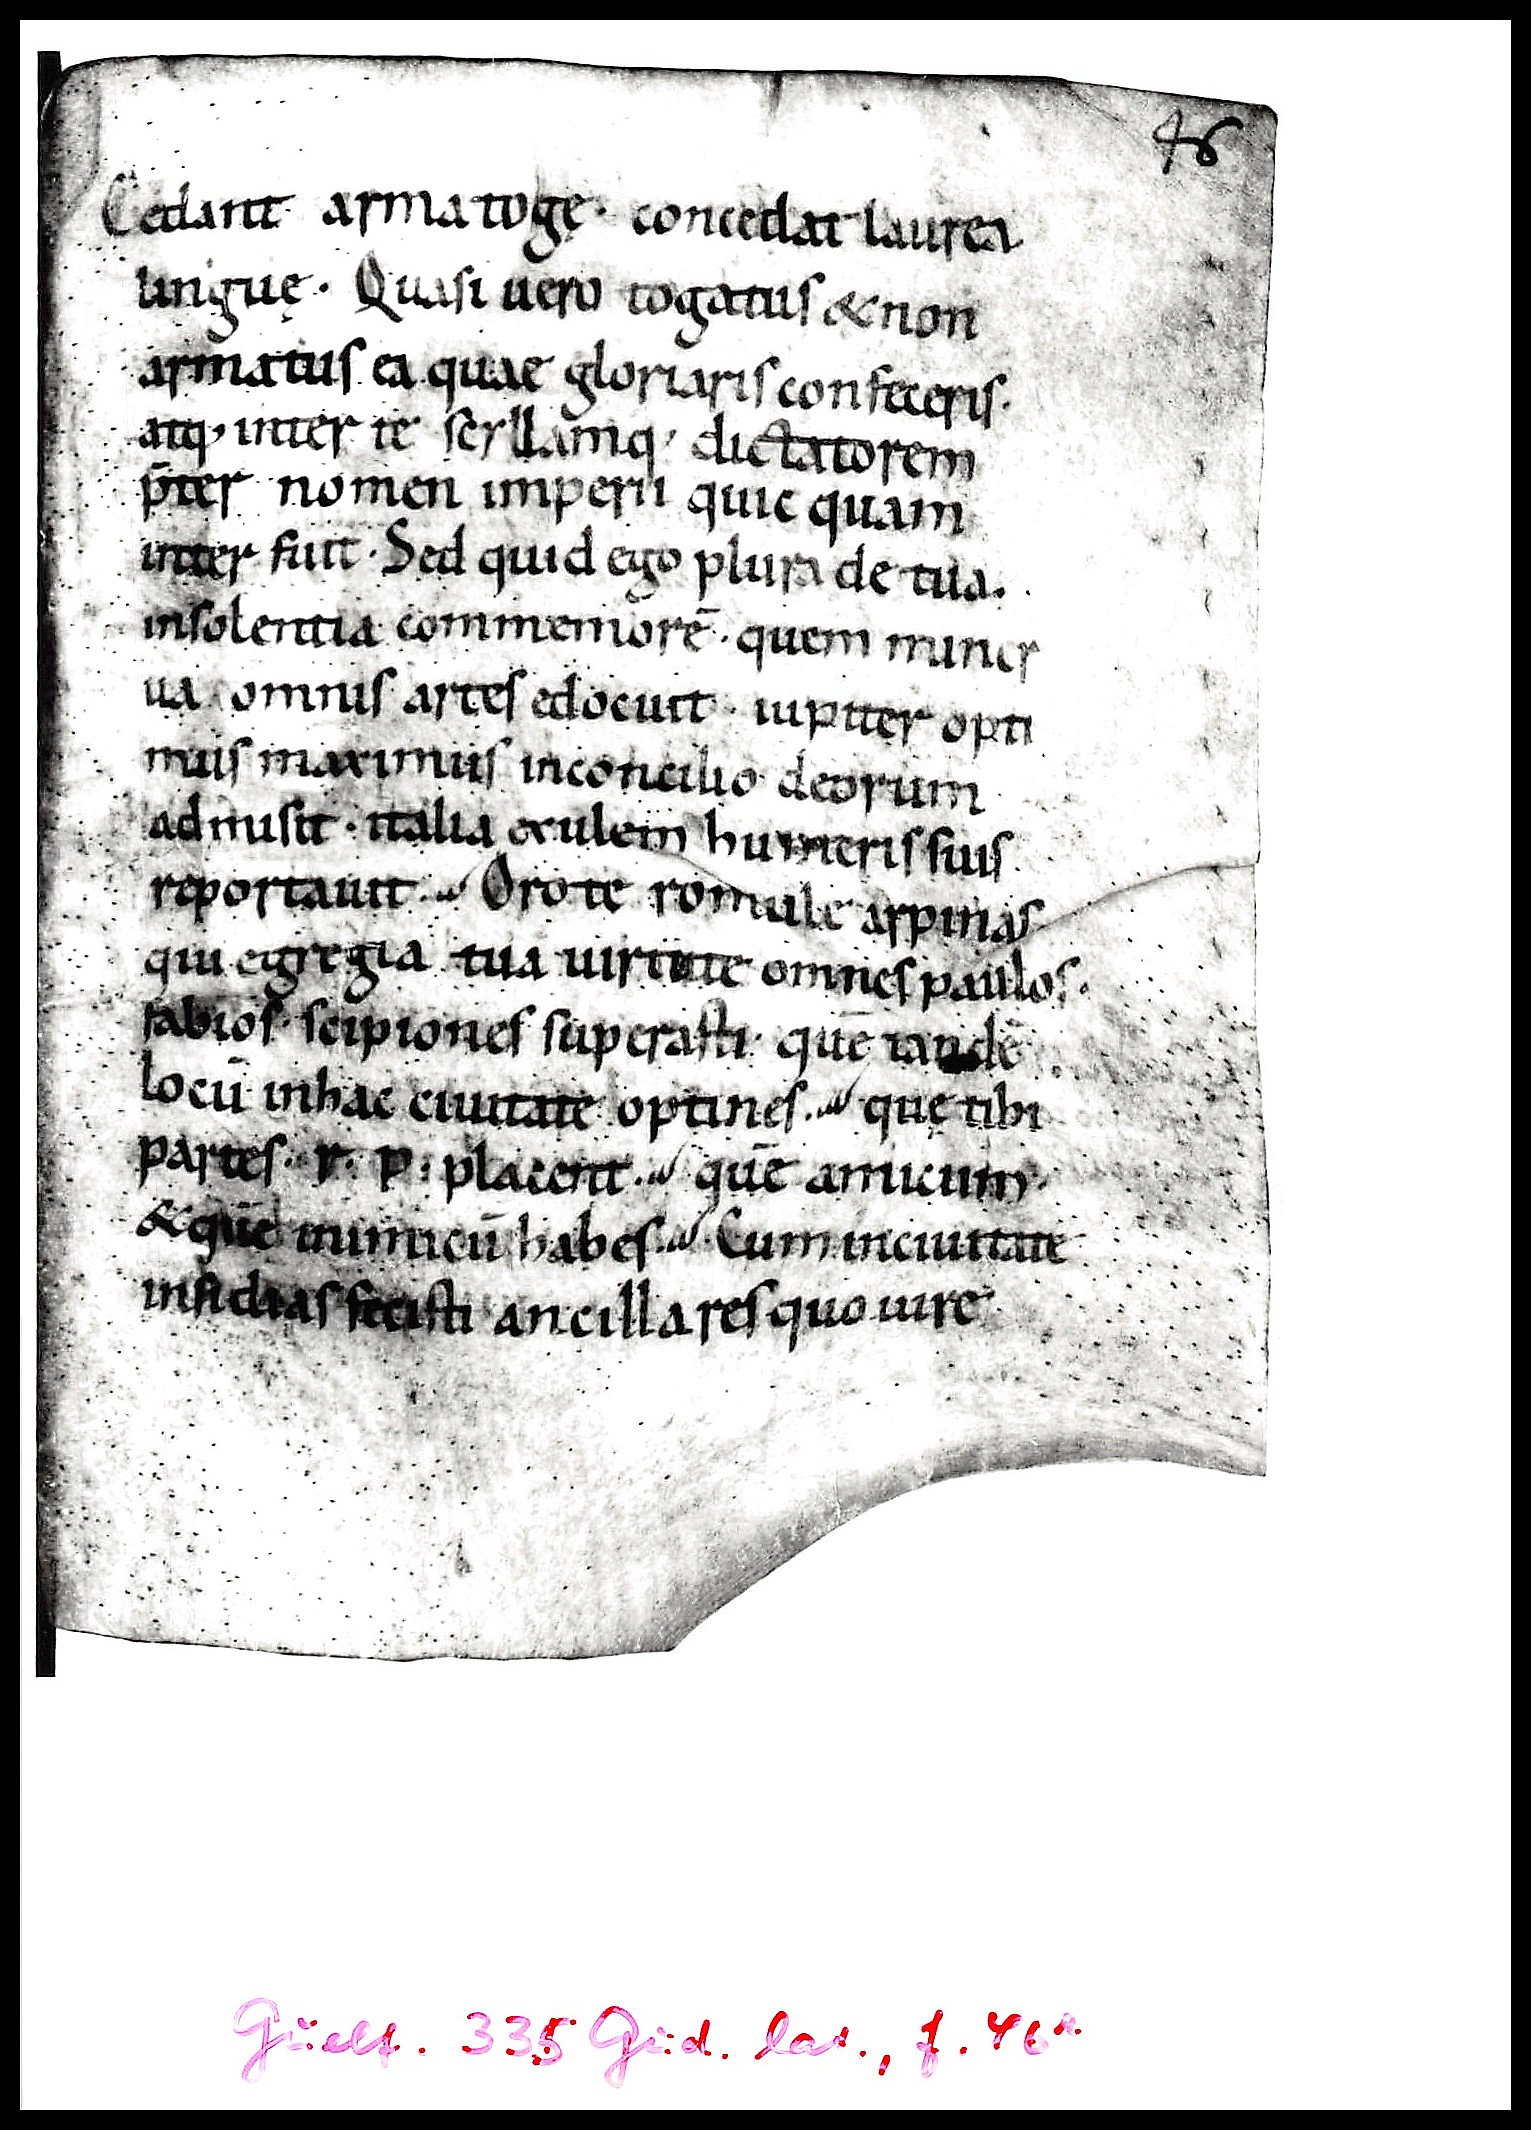 46
Cedant arma togę · concedat laurea
linguę · Quasi uero togatus & non
armatus ea quae gloriaris confeceris ·
atq; inter te scyllamq; dictatorem
p̄ter nomen imperii quic quam
inter fuit · Sed quid ego plura de tua ·
insolentia commemorē · quem miner
ua omnis artes edocuit · iupiter opti
mus maximus inconcilio deorum
admisit · italia exulem humeris suis
reportauit · Oro te romule arpinas
qui egregia tua uirtute omnes paulos ·
fabios · scipiones superasti · quē tandē
locū inhac ciuitate optines · quę tibi
partes · r · p · placent · quē amicum ·
& quē inimicū habes · Cum inciuitate
insidias fecisti ancillares quo iure
Guelf. 335 Gud. lat., f. 46r